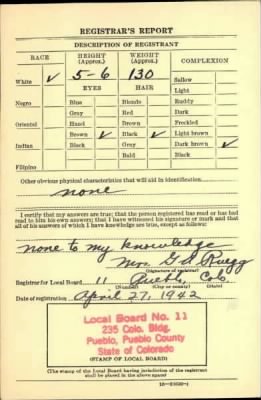 REGISTRAR'S REPORT
DESCRIPTION OF REGISTRANT
RACE HEIGHT (Approx.) WEIGHT (Approx.) COMPLEXION
White ✓ 5-6 130 Sallow
EYES HAIR Light
Negro Blue Blonde Ruddy
Gray Red Dark
Oriental Hazel Brown Freckled
Brown ✓ Black ✓ Light brown
Indian Black Gray Dark brown ✓
Bald Black
Filipino
Other obvious physical characteristics that will aid in identification
none
I certify that my answers are true; that the person registered has read or has had
read to him his own answers; that I have witnessed his signature or mark and that
all of his answers of which I have knowledge are true, except as follows:
none to my knowledge
Mrs. G. S. Rugg
(Signature of registrar)
Registrar for Local Board 11 Pueblo, Colo
(Number) (City or county) (State)
Date of registration April 27, 1942
Local Board No. 11
235 Colo. Bldg.
Pueblo, Pueblo County
State of Colorado
(STAMP OF LOCAL BOARD)
(The stamp of the Local Board having jurisdiction of the registrant
shall be placed in the above space)